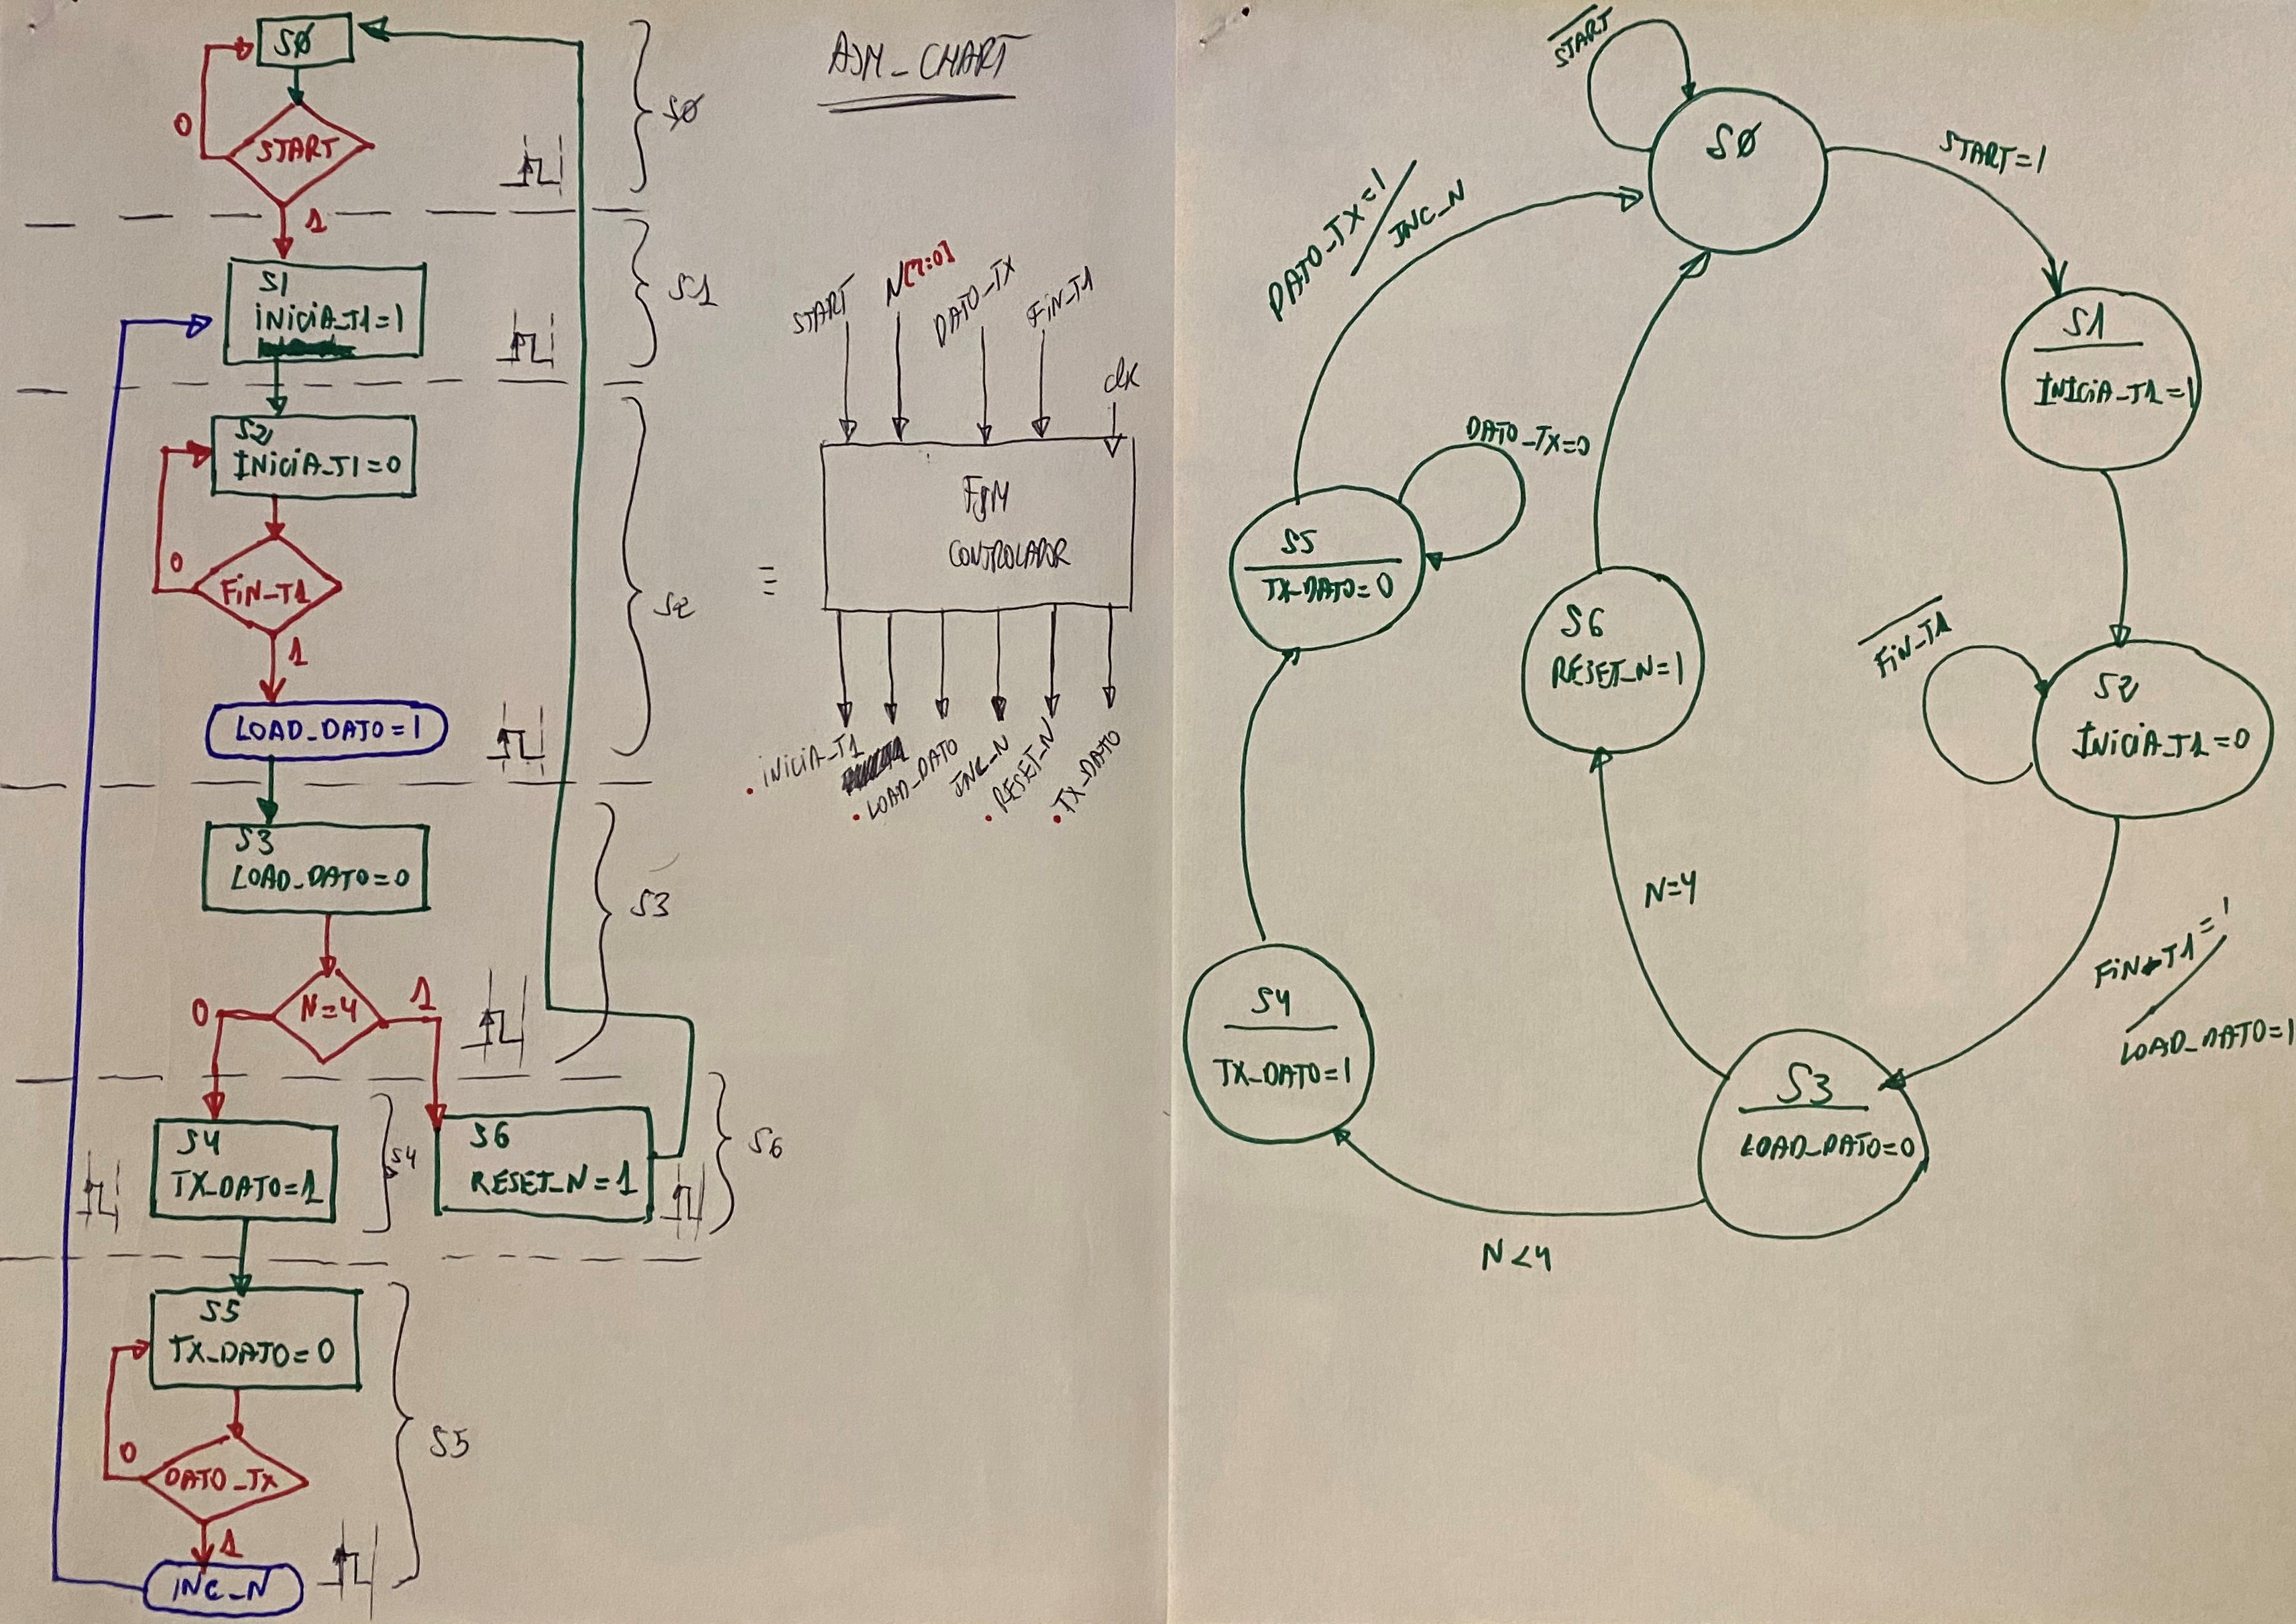 SØ
START
0
1
SØ
S1
INICIA_T1=1
S1
S2
INICIA_T1=0
FIN_T1
0
1
LOAD_DATO=1
S2
S3
LOAD_DATO=0
N=4
0
1
S3
S4
TX_DATO=1
S4
S6
RESET_N=1
S6
S5
TX_DATO=0
DATO_TX
0
1
INC_N
S5
ASM_CHART
START
N[7:0]
DATO_TX
FIN_T1
clk
≡
FSM
CONTROLADOR
INICIA_T1
LOAD_DATO
INC_N
RESET_N
TX_DATO
START
SØ
START=1
S1
INICIA_T1=1
FIN_T1
S2
INICIA_T1=0
FIN_T1=1
LOAD_DATO=1
S3
LOAD_DATO=0
N=4
N<4
S6
RESET_N=1
S4
TX_DATO=1
S5
TX_DATO=0
DATO_TX=0
DATO_TX=1
INC_N